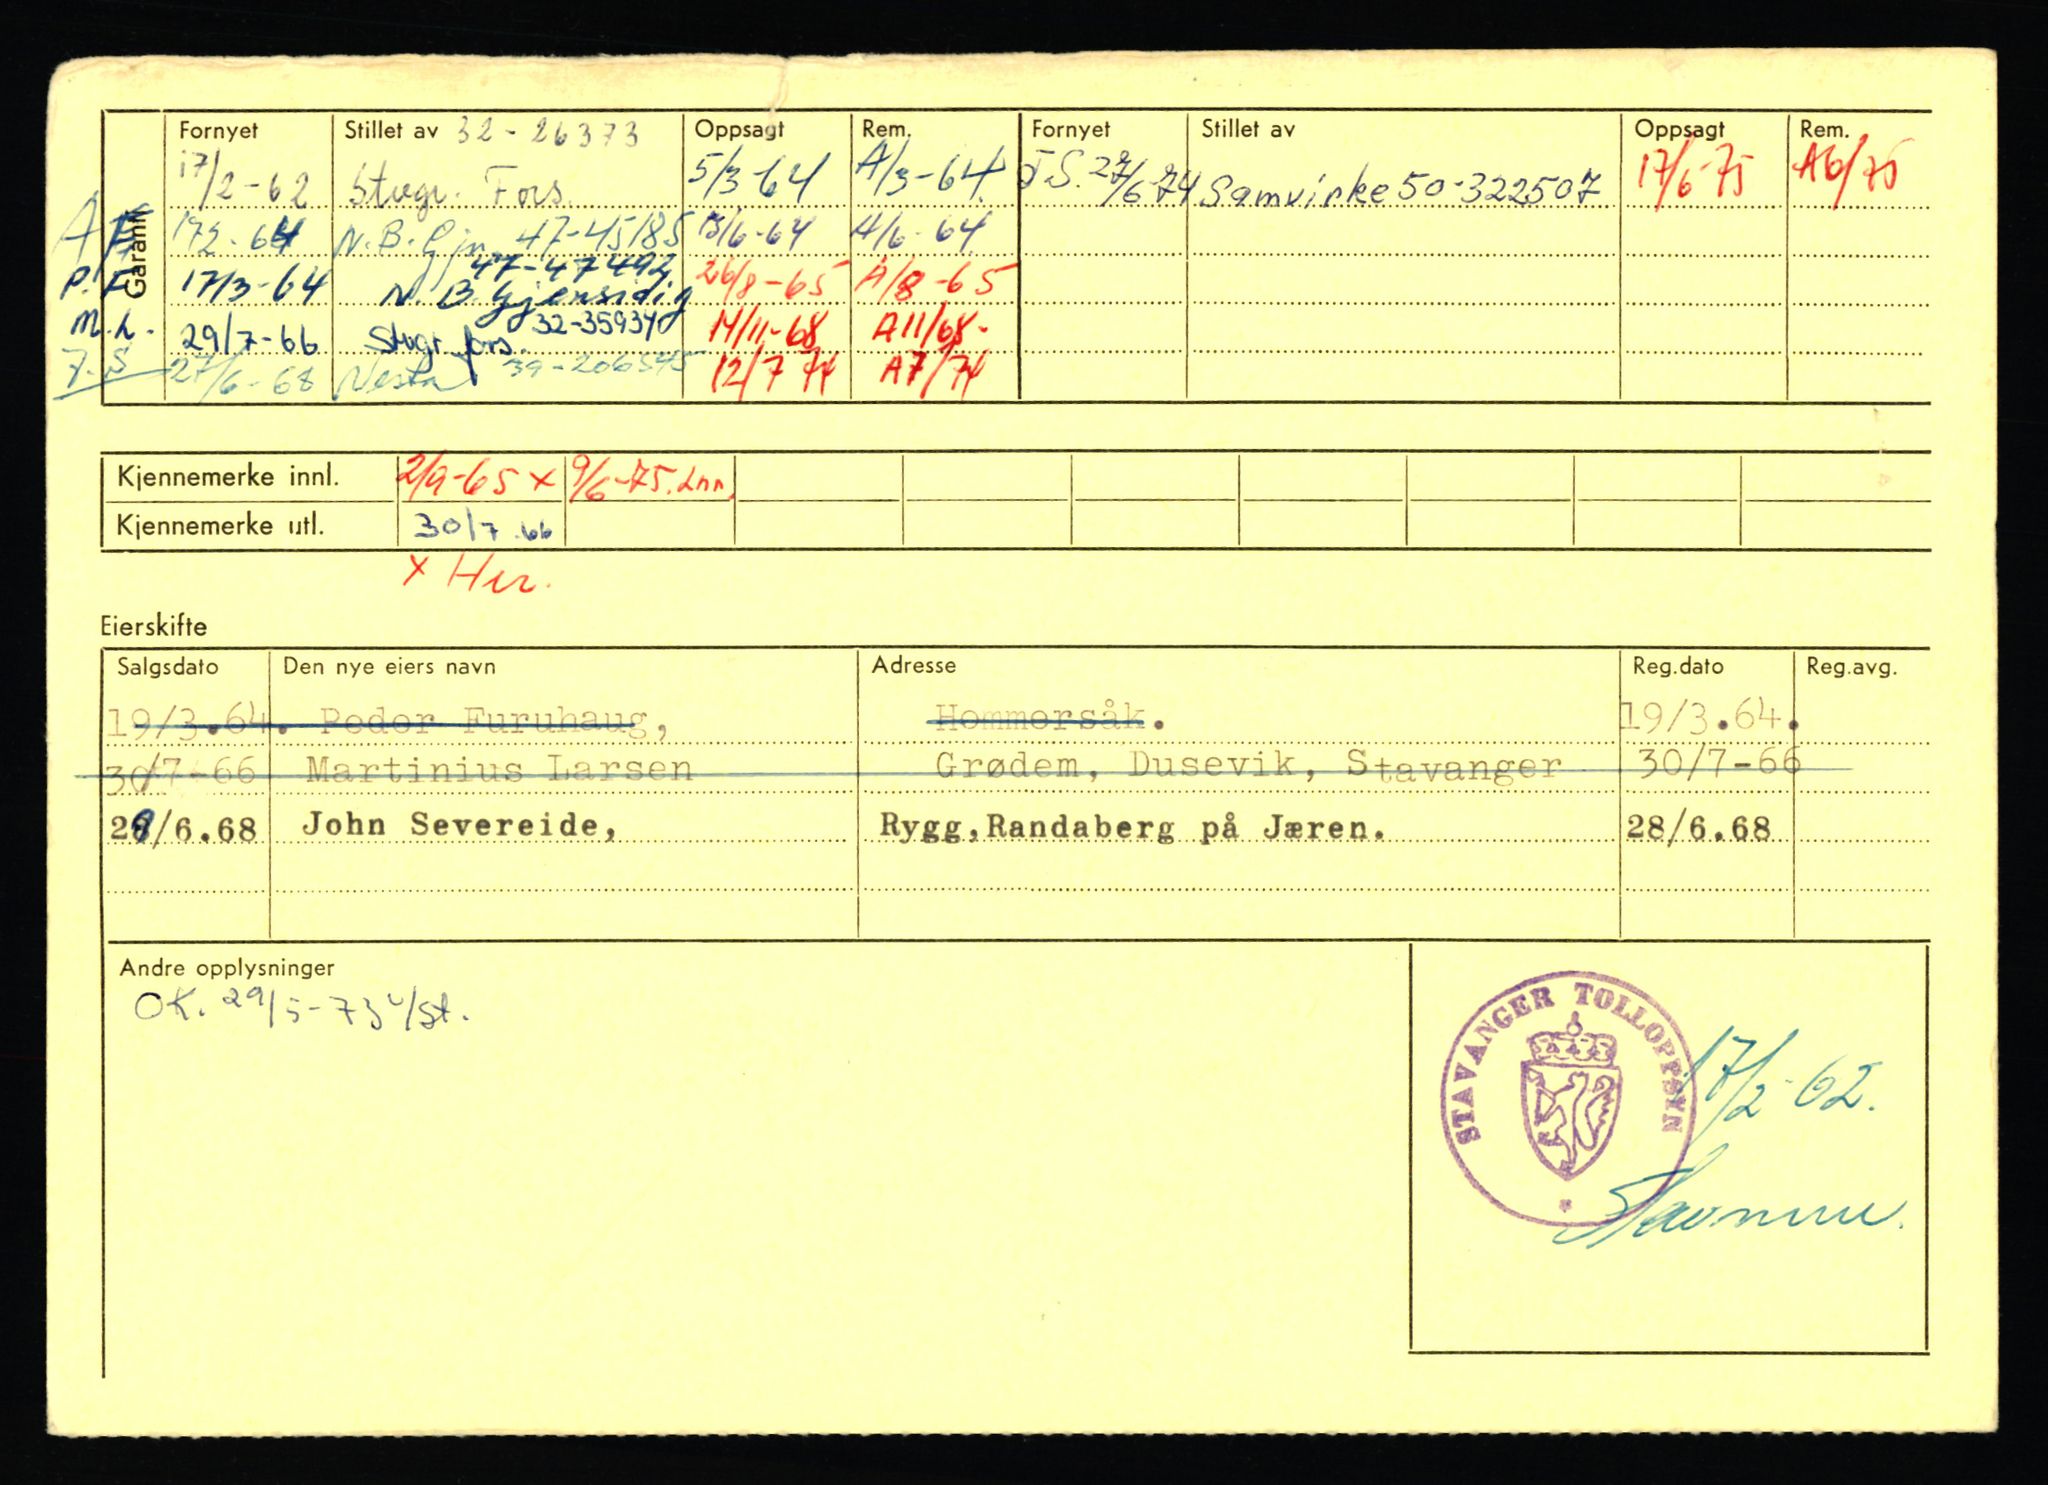 Garanti
Fornyet Stillet av 32-26373 Oppsagt Rem. Fornyet Stillet av Oppsagt Rem.
17/2-62 Stvgr. Fors. 5/3-64 A/3-64. J.S. 27/6-74 Samvirke 50-322507 17/6-75 A6/75
17/2-64 N.B. Gjn. 47-45185 13/6-64 A/6-64
47-47492
P.F. 17/3-64 N.B. Gjensidig 26/8-65 A/8-65
M.L. 29/7-66 Stvgr. fors. 32-35934 14/11-68 A11/68.
J.S 27/6-68 Vesta 39-206545 12/7 74 A7/74
Kjennemerke innl. 2/9-65 x 9/6-75. Inn.
Kjennemerke utl. 30/7.66
x Her.
Eierskifte
Salgsdato Den nye eiers navn Adresse Reg.dato Reg.avg.
19/3.64. Peder Furuhaug, Hommersåk. 19/3.64.
30/7-66 Martinius Larsen Grødem, Dusevik, Stavanger 30/7-66
28/6.68 John Severeide, Rygg, Randaberg på Jæren. 28/6.68
Andre opplysninger
OK. 29/5-73 /St.
STAVANGER TOLLOPPSYN
17/2-62.